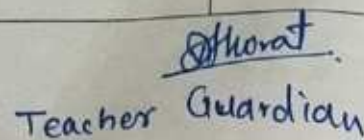 Thorat
Teacher Guardian